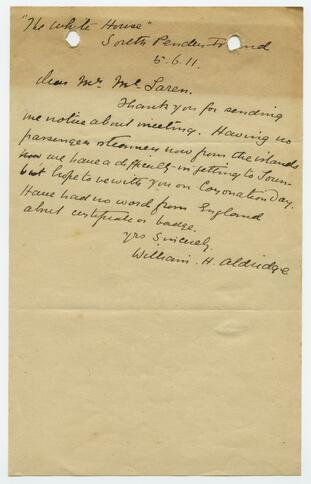 "The White House"
South Pender Island
5.6.11.
Dear Mr. McLaren.
Thank you for sending
me notice about meeting. Having no
passenger steamers now from the islands
we have a difficulty in getting to Town
but hope to be with you on Coronation Day.
Have had no word from England
about certificate or badge.
yrs Sincerely,
William. H. Aldridge